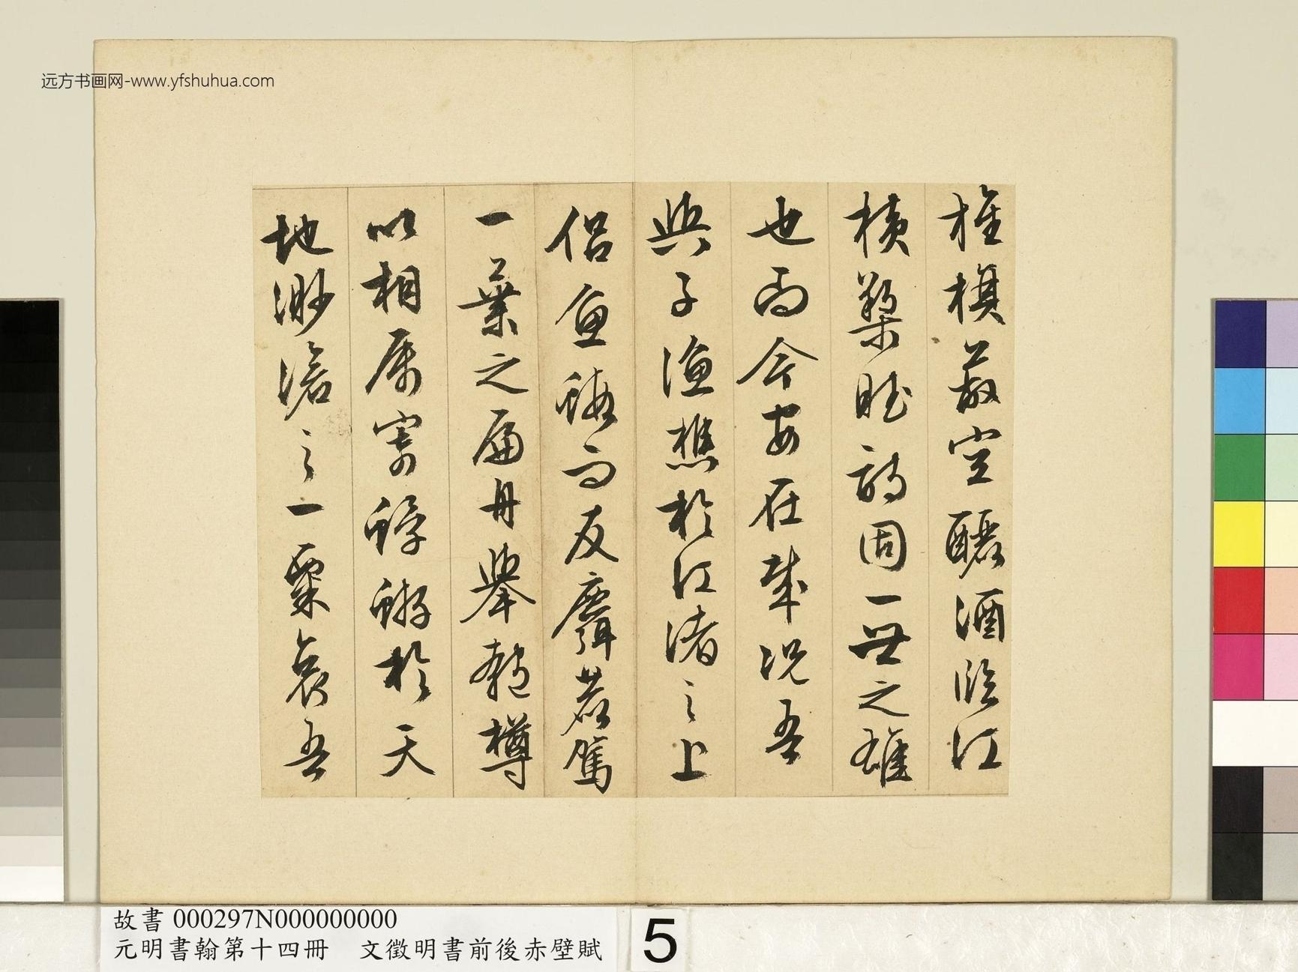 远方书画网-www.yfshuhua.com
旌旗蔽空釃酒臨江
橫槊賦詩固一世之雄
也而今安在哉況吾
與子漁樵於江渚之上
侶魚蝦而友麋鹿駕
一葉之扁舟舉匏樽
以相属寄蜉蝣於天
地渺滄之一粟哀吾
故書 000297N000000000
元明書翰第十四冊 文徵明書前後赤壁賦
5